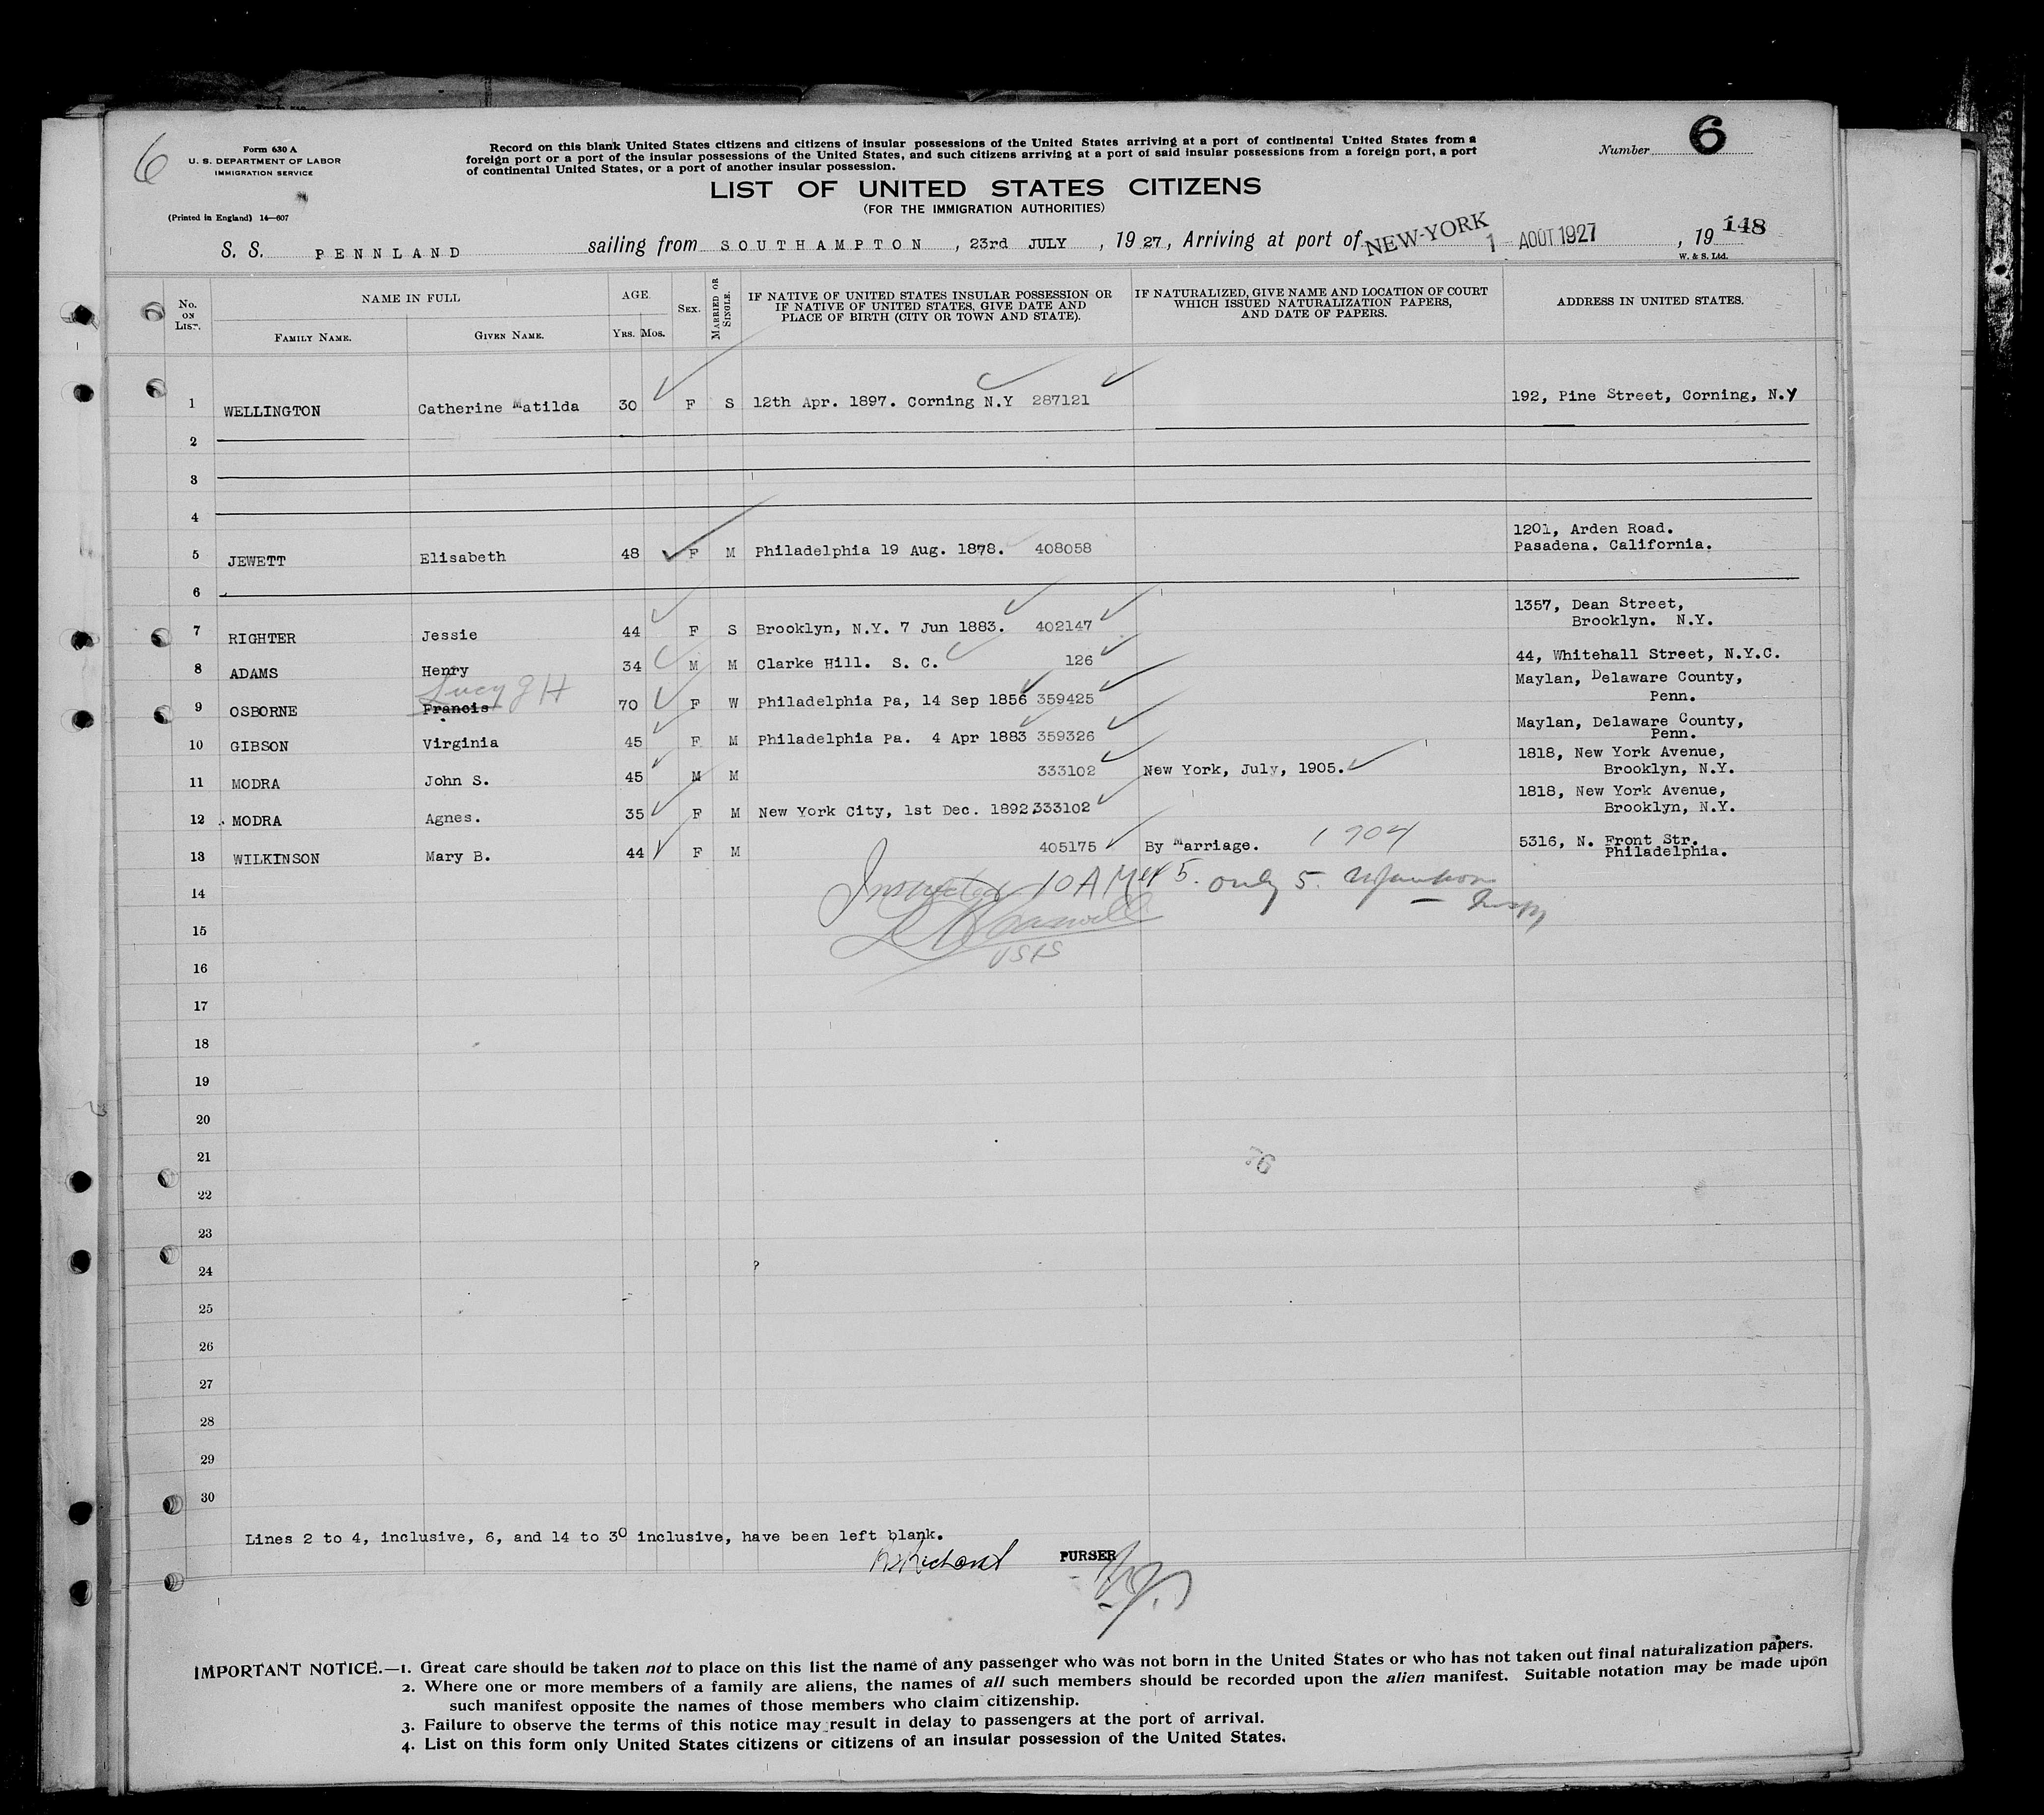 6
Form 630 A
U. S. DEPARTMENT OF LABOR
IMMIGRATION SERVICE
(Printed in England) 14—607
Record on this blank United States citizens and citizens of insular possessions of the United States arriving at a port of continental United States from a
foreign port or a port of the insular possessions of the United States, and such citizens arriving at a port of said insular possessions from a foreign port, a port
of continental United States, or a port of another insular possession.
Number 6
LIST OF UNITED STATES CITIZENS
(FOR THE IMMIGRATION AUTHORITIES)
S. S. PENNLAND sailing from SOUTHAMPTON, 23rd JULY, 1927, Arriving at port of NEW-YORK 1 AOUT 1927, 19 148
W. & S. Ltd.
No. ON LIST. NAME IN FULL FAMILY NAME. GIVEN NAME. AGE. YRS. MOS. SEX. MARRIED OR SINGLE. IF NATIVE OF UNITED STATES INSULAR POSSESSION OR IF NATIVE OF UNITED STATES, GIVE DATE AND PLACE OF BIRTH (CITY OR TOWN AND STATE). IF NATURALIZED, GIVE NAME AND LOCATION OF COURT WHICH ISSUED NATURALIZATION PAPERS, AND DATE OF PAPERS. ADDRESS IN UNITED STATES.
1 WELLINGTON Catherine Matilda 30 F S 12th Apr. 1897. Corning N.Y 287121 192, Pine Street, Corning, N.Y
2
3
4
5 JEWETT Elisabeth 48 F M Philadelphia 19 Aug. 1878. 408058 1201, Arden Road. Pasadena. California.
6
7 RIGHTER Jessie 44 F S Brooklyn, N.Y. 7 Jun 1883. 402147 1357, Dean Street, Brooklyn. N.Y.
8 ADAMS Henry 34 M M Clarke Hill. S. C. 126 44, Whitehall Street, N.Y.C.
9 OSBORNE Francis Lucy J H 70 F W Philadelphia Pa, 14 Sep 1856 359425 Maylan, Delaware County, Penn.
10 GIBSON Virginia 45 F M Philadelphia Pa. 4 Apr 1883 359326 Maylan, Delaware County, Penn.
11 MODRA John S. 45 M M 333102 New York, July, 1905. 1818, New York Avenue, Brooklyn, N.Y.
12 MODRA Agnes. 35 F M New York City, 1st Dec. 1892. 333102 1818, New York Avenue, Brooklyn, N.Y.
13 WILKINSON Mary B. 44 F M 405175 By Marriage. 1904 5316, N. Front Str. Philadelphia.
14 Inspected 10 AM 5. only 5.
15
16
17
18
19
20
21
22
23
24
25
26
27
28
29
30
Lines 2 to 4, inclusive, 6, and 14 to 30 inclusive, have been left blank.
PURSER
IMPORTANT NOTICE.—1. Great care should be taken not to place on this list the name of any passenger who was not born in the United States or who has not taken out final naturalization papers.
2. Where one or more members of a family are aliens, the names of all such members should be recorded upon the alien manifest. Suitable notation may be made upon
such manifest opposite the names of those members who claim citizenship.
3. Failure to observe the terms of this notice may result in delay to passengers at the port of arrival.
4. List on this form only United States citizens or citizens of an insular possession of the United States.